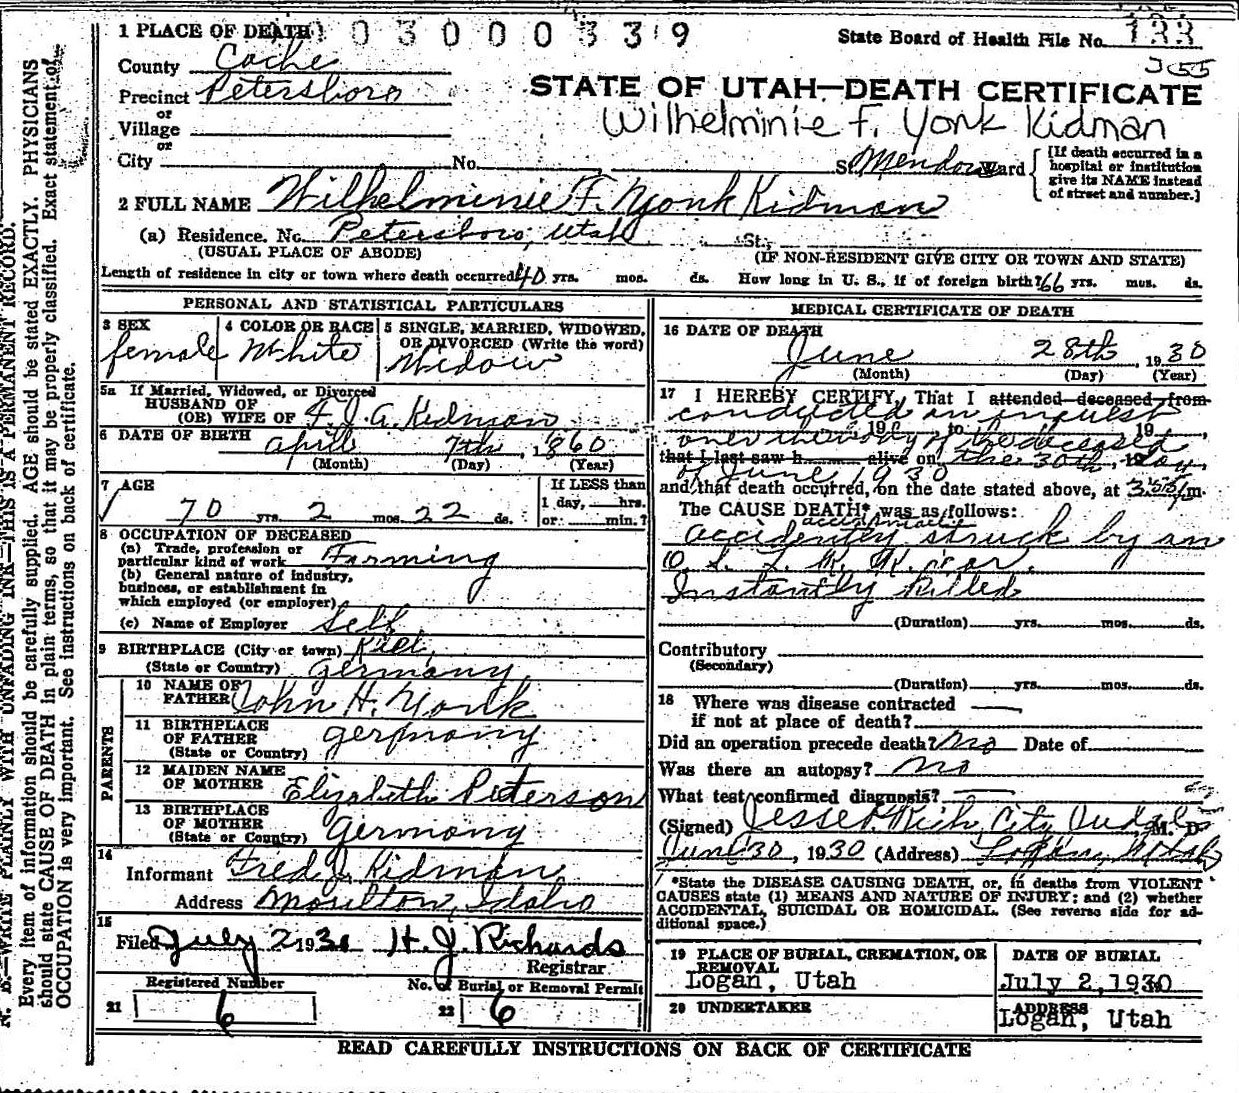 1 PLACE OF DEATH 0 3 0 0 0 3 3 9 State Board of Health File No. 133
County Cache J 55
Precinct Petersboro STATE OF UTAH—DEATH CERTIFICATE
or
Village Wilhelminie F. Yonk Kidman
or
City No. St. Ward [If death occurred in a hospital or institution give its NAME instead of street and number.]
2 FULL NAME Wilhelminie F. Yonk Kidman
(a) Residence. No. Petersboro, Utah St.,
(USUAL PLACE OF ABODE) (IF NON-RESIDENT GIVE CITY OR TOWN AND STATE)
Length of residence in city or town where death occurred 40 yrs. mos. ds. How long in U. S., if of foreign birth? 66 yrs. mos. ds.
PERSONAL AND STATISTICAL PARTICULARS
3 SEX 4 COLOR OR RACE 5 SINGLE, MARRIED, WIDOWED, OR DIVORCED (Write the word)
female White Widow
5a If Married, Widowed, or Divorced
HUSBAND OF
(OR) WIFE OF F. J. A. Kidman
6 DATE OF BIRTH April 7th, 1860
(Month) (Day) (Year)
7 AGE If LESS than
1 day, hrs.
70 yrs. 2 mos. 22 ds. or min.?
8 OCCUPATION OF DECEASED
(a) Trade, profession or
particular kind of work Farming
(b) General nature of industry,
business, or establishment in
which employed (or employer)
(c) Name of Employer Self
9 BIRTHPLACE (City or town) Kiel,
(State or Country) Germany
PARENTS
10 NAME OF
FATHER John H. Yonk
11 BIRTHPLACE
OF FATHER Germany
(State or Country)
12 MAIDEN NAME
OF MOTHER Elizabeth Peterson
13 BIRTHPLACE
OF MOTHER Germany
(State or Country)
14
Informant Fred J. Kidman
Address Moulton, Idaho
15
Filed July 2 1930 H. J. Richards
Registrar
Registered Number No. of Burial or Removal Permit
21 6 22 6
MEDICAL CERTIFICATE OF DEATH
16 DATE OF DEATH
June 28th, 1930
(Month) (Day) (Year)
17 I HEREBY CERTIFY, That I attended deceased from
conducted an inquest
, 19 , to , 19 ,
over the body of the deceased
that I last saw h alive on the 30th, 19 day
of June, 1930
and that death occurred, on the date stated above, at m.
The CAUSE DEATH* was as follows:
accidentaly struck by an
O. S. L. R. R. car.
Instantly killed
(Duration) yrs. mos. ds.
Contributory
(Secondary)
(Duration) yrs. mos. ds.
18 Where was disease contracted
if not at place of death?
Did an operation precede death? No Date of
Was there an autopsy? No
What test confirmed diagnosis?
(Signed) Jesse P. Rich, City Judge M. D.
June 30, 1930 (Address) Logan, Utah
*State the DISEASE CAUSING DEATH, or, in deaths from VIOLENT
CAUSES state (1) MEANS AND NATURE OF INJURY; and (2) whether
ACCIDENTAL, SUICIDAL OR HOMICIDAL. (See reverse side for ad-
ditional space.)
19 PLACE OF BURIAL, CREMATION, OR REMOVAL DATE OF BURIAL
Logan, Utah July 2, 1930
20 UNDERTAKER ADDRESS
Logan, Utah
READ CAREFULLY INSTRUCTIONS ON BACK OF CERTIFICATE
N. B.—WRITE PLAINLY WITH UNFADING INK—THIS IS A PERMANENT RECORD.
Every item of information should be carefully supplied. AGE should be stated EXACTLY. PHYSICIANS
should state CAUSE OF DEATH in plain terms, so that it may be properly classified. Exact statement of
OCCUPATION is very important. See instructions on back of certificate.